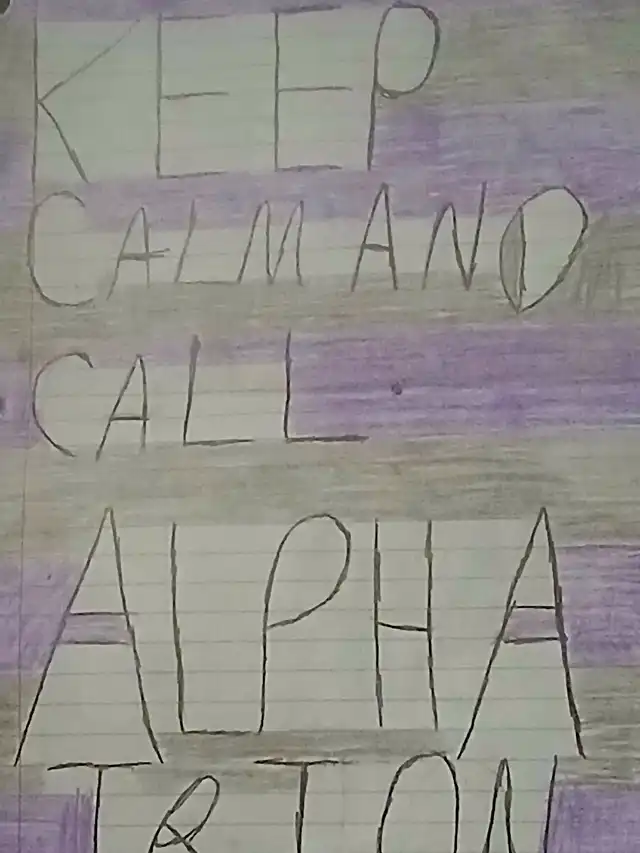 KEEP
CALM AND
CALL
ALPHA
TRION